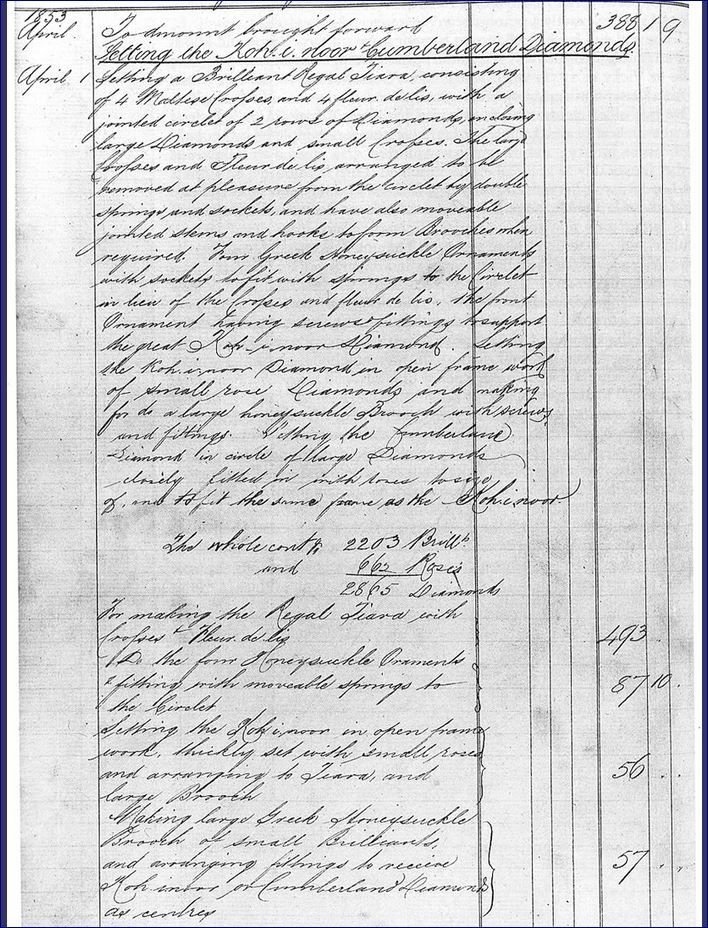 1853
April. To Amount brought forward 388 1 9
Setting the Koh.i.noor & Cumberland Diamonds.
April 1 Setting a Brilliant Regal Tiara, consisting
of 4 Maltese Crosses, and 4 fleur. de lis, with a
jointed circlet of 2 rows of Diamonds, enclosing
large Diamonds and small Crosses. The large
Crosses and Fleur de lis arranged to be
removed at pleasure from the Circlet by double
springs and sockets, and have also moveable
jointed stems and hooks to form Brooches when
required. Four Greek Honeysuckle Ornaments
with sockets to fit with springs to the Circlet
in lieu of the Crosses and fleur de lis, the front
Ornament having screws & fittings to support
the great Koh-i-noor Diamond. Setting
the Koh.i.noor Diamond in open frame work
of small rose Diamonds and making
for do a large honeysuckle Brooch with screws
and fittings. Setting the Cumberland
Diamond in circle of large Diamonds
closely fitted in with roses to
of, and to fit the same frame as the Koh.i.noor
The whole contg 2203 Brillts
and 662 Roses
2865 Diamonds
For making the Regal Tiara with
Crosses & Fleur. de lis 493 . .
Do the four Honeysuckle Ornaments
& fitting with moveable springs to 87 10 .
the Circlet
Setting the Koh i noor in open frame
work, thickly set with small roses
and arranging to Tiara, and 56 . .
large Brooch
Making large Greek Honeysuckle
Brooch of small Brilliants,
and arranging fittings to receive 57 . .
Koh inoor or Cumberland Diamond
as centres